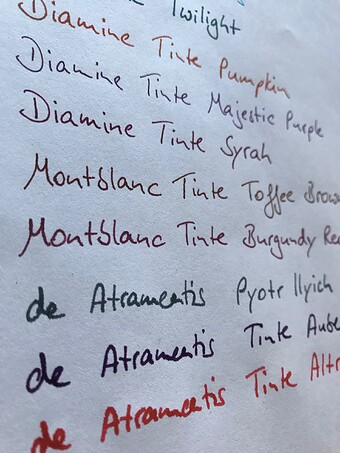 Twilight
Diamine Tinte Pumpkin
Diamine Tinte Majestic Purple
Diamine Tinte Syrah
Montblanc Tinte Toffee Brow
Montblanc Tinte Burgundy Re
de Atramentis Pyotr Ilyich
de Atramentis Tinte Aube
de Atramentis Tinte Altr